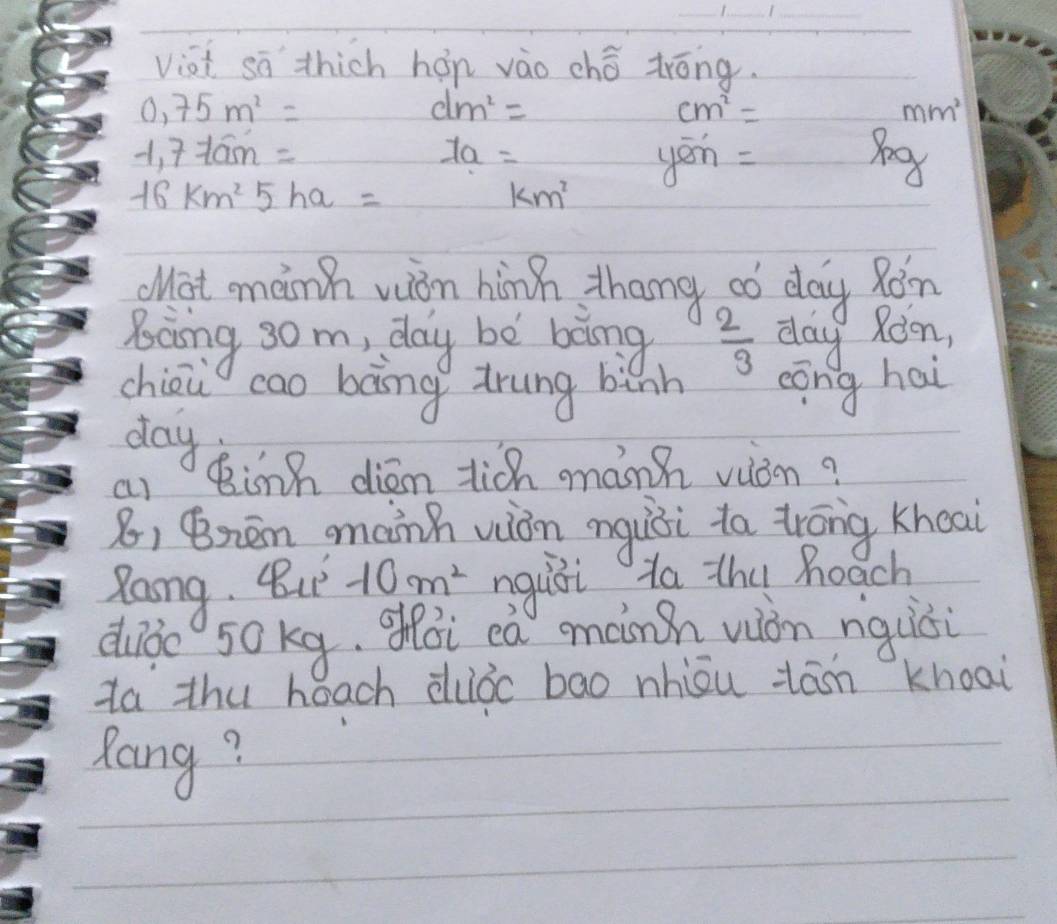 Viết số thích hợp vào chỗ trống.
0,75 m² = dm² = cm² = mm²
1,7 tấn = tạ = yến = kg
16 km² 5 ha = km²
Một mảnh vườn hình thang có đáy lớn
bằng 30 m, đáy bé bằng 2/3 đáy lớn,
chiều cao bằng trung bình cộng hai
đáy.
a) Tính diện tích mảnh vườn?
b) Trên mảnh vườn người ta trồng khoai
lang. Cứ 10 m² người ta thu hoạch
được 50 kg. Hỏi cả mảnh vườn người
ta thu hoạch được bao nhiêu tấn khoai
lang?